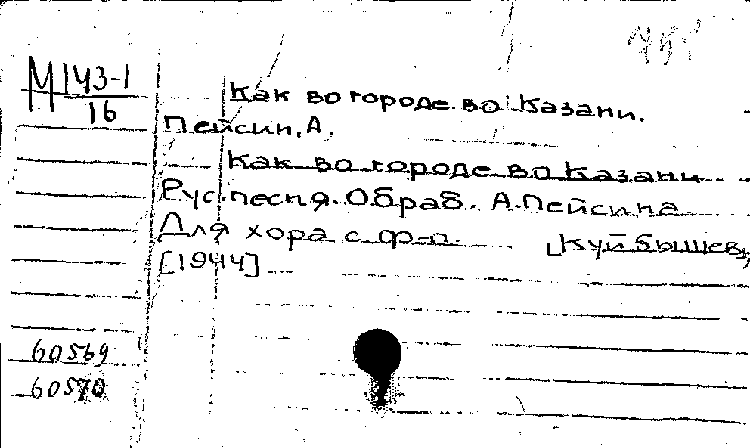 М 143-1
16
Как во городе во Казани.
Пейсин, А.
Как во городе во Казани
Рус. песня. Обраб. А. Пейсина
Для хора с ф-п. [Куйбышев],
[1944]
60569
60570